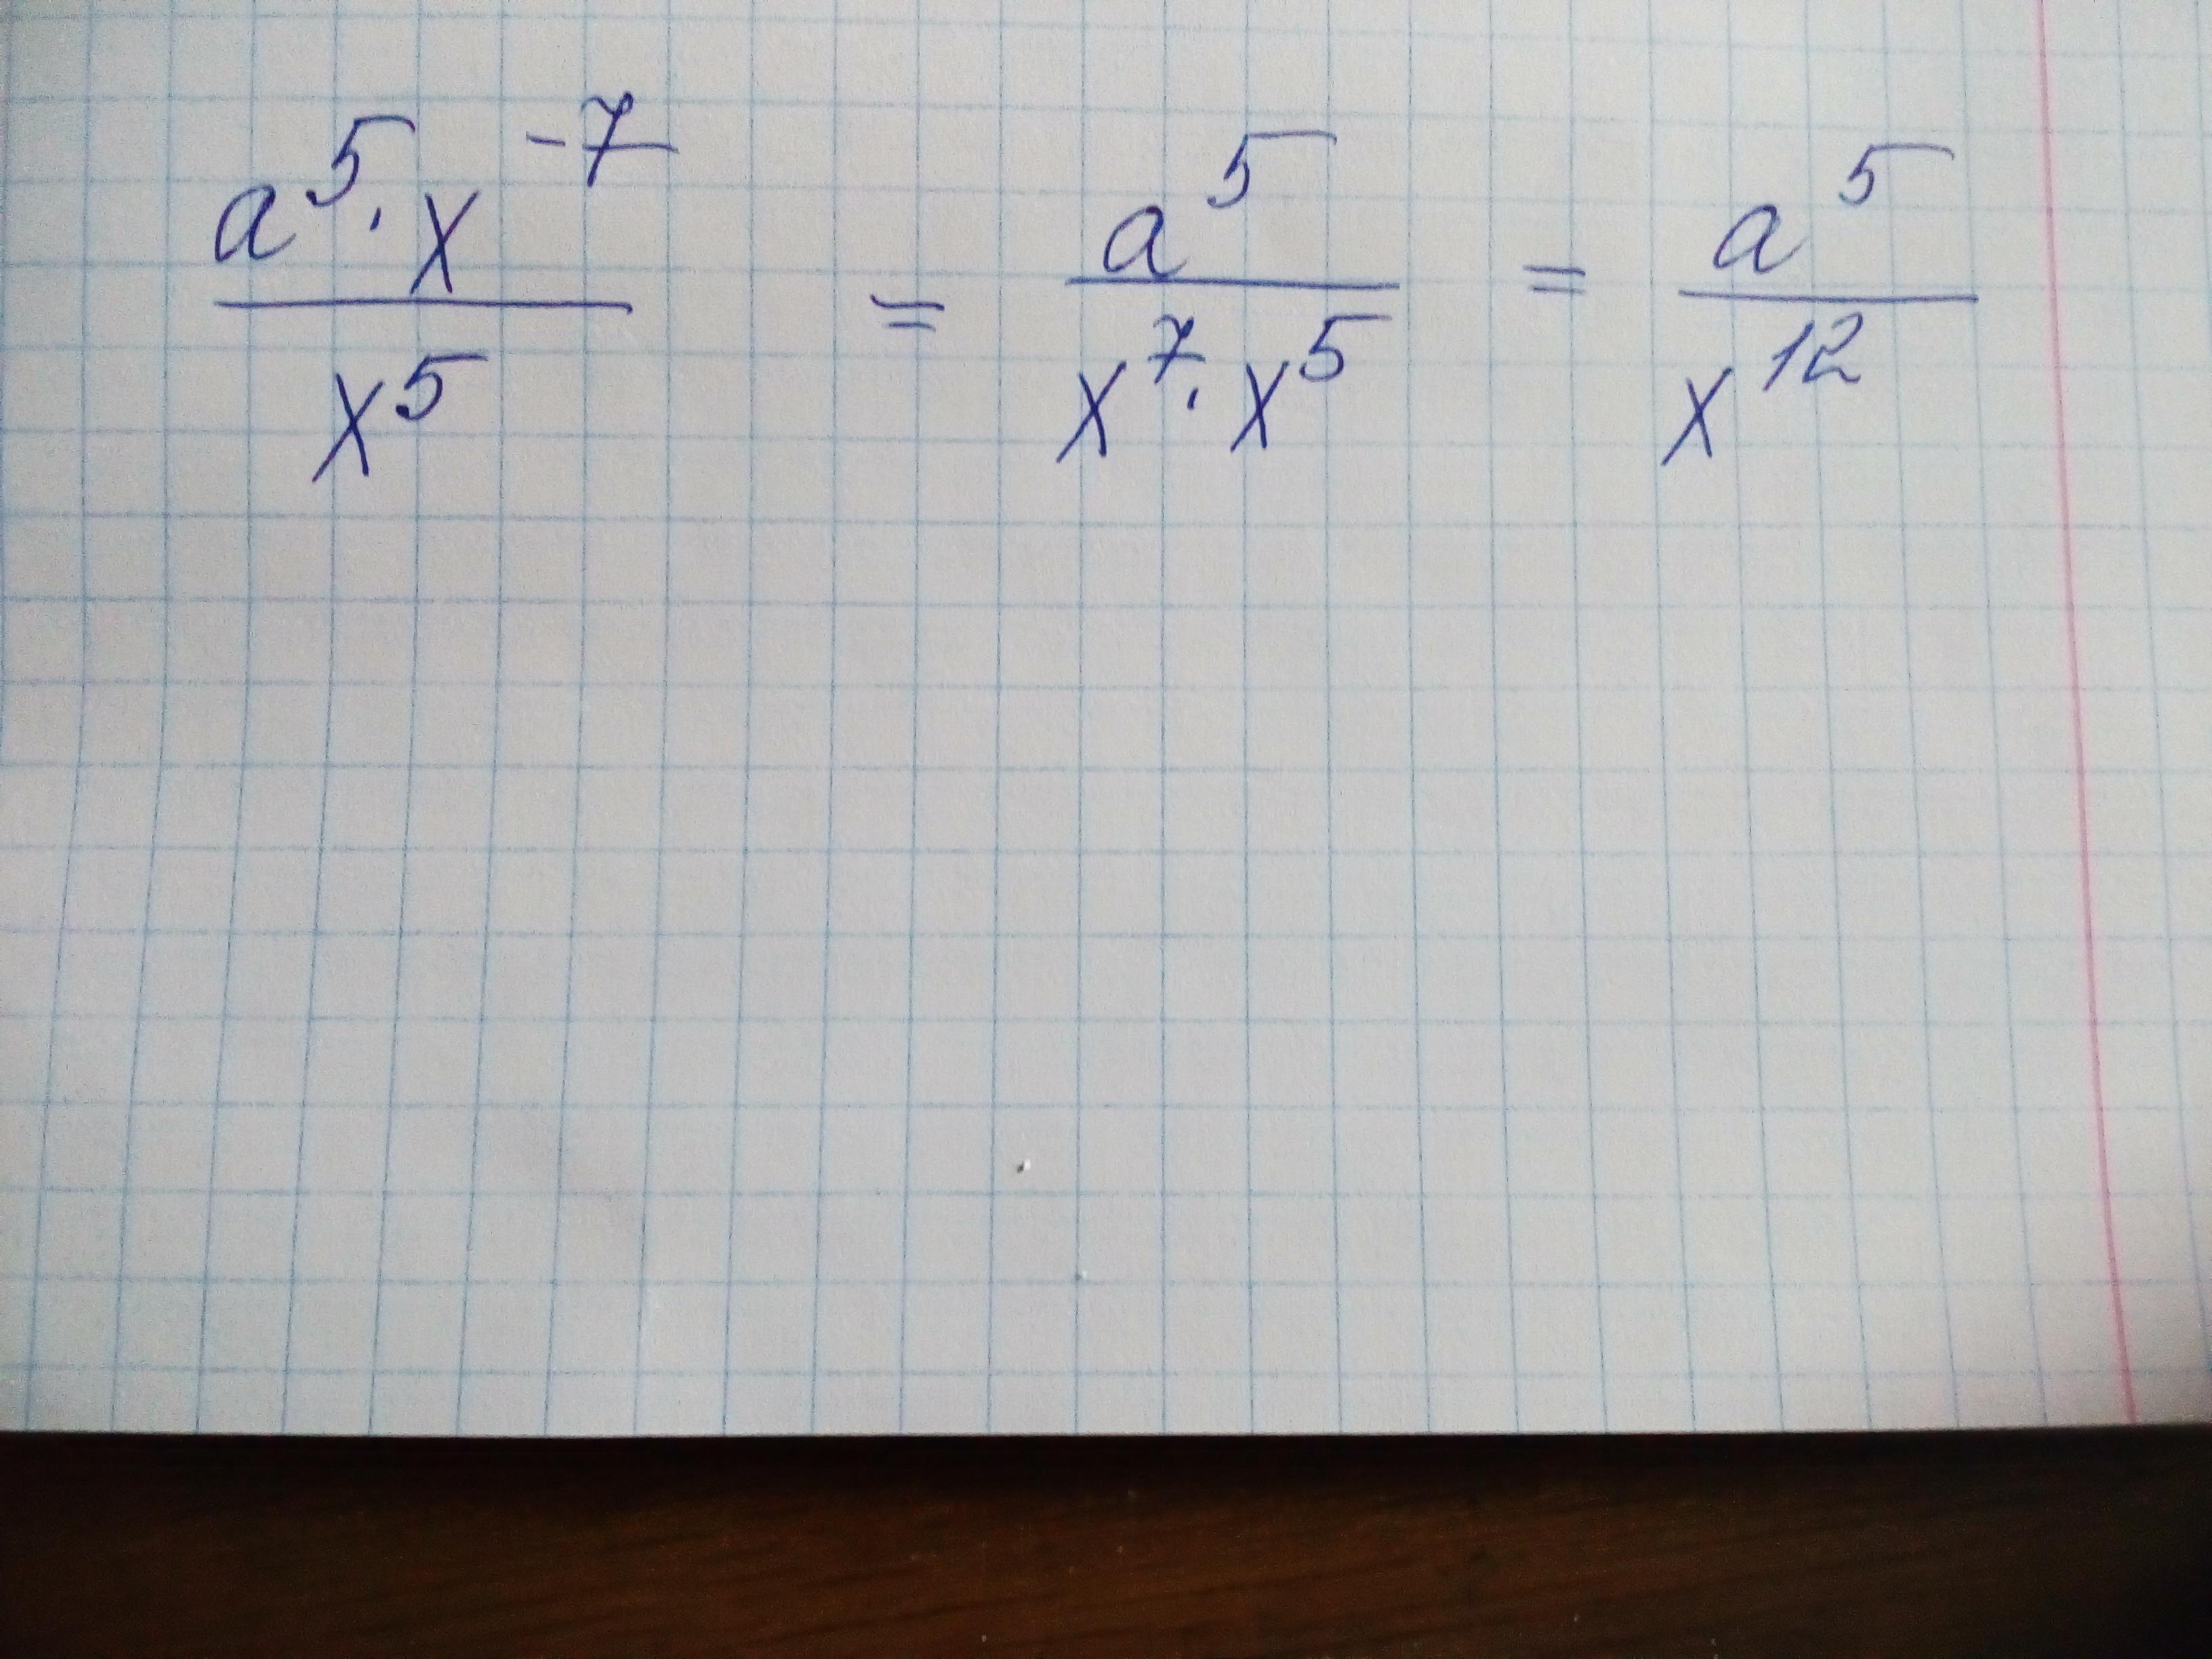 \frac{a^5 \cdot x^{-7}}{x^5} = \frac{a^5}{x^7 \cdot x^5} = \frac{a^5}{x^{12}}